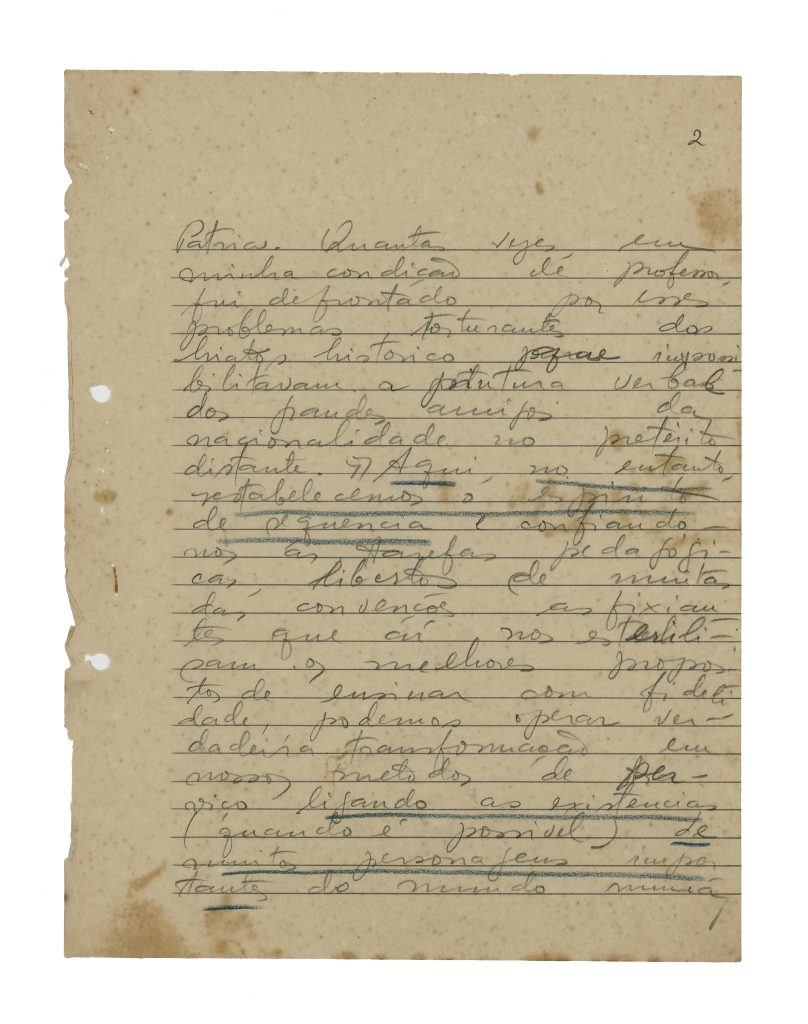 2
Patria. Quantas vezes em
minha condição de professor,
fui defrontado por esses
problemas torturantes dos
hiatos historico que impossi
bilitavam a pintura verbal
dos grandes amigos da
nacionalidade no pretérito
distante. Aqui, no entanto,
restabelecemos o espirito
de sequencia e confiando-
nos ás tarefas pedagógi-
cas, libertos de muitas
das convenções asfixian
tes que aí nos esterili-
sam os melhores proposi
tos de ensinar com fideli
dade, podemos operar ver-
dadeira transformação em
nossos metodos de ser-
viço ligando as existencias
(quando é possivel) de
muitos personagens impor
tantes do mundo